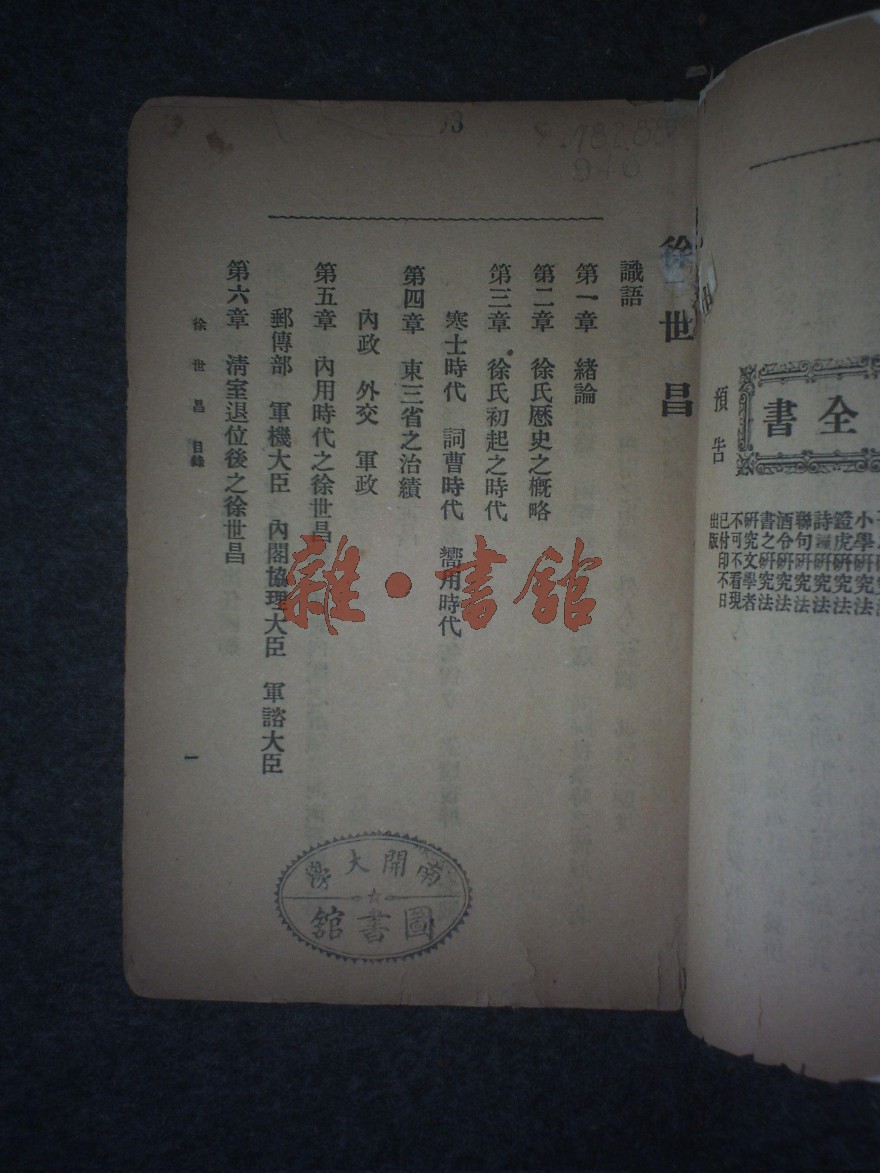 全書
預告
小學研究法
證虎研究法
詩謎研究法
聯句研究法
酒令研究法
書之研究法
研究文學者
不可不看現
已付印不日
出版
徐世昌
識語
第一章 緒論
第二章 徐氏歷史之概略
第三章 徐氏初起之時代
寒士時代 詞曹時代 嚮用時代
第四章 東三省之治績
內政 外交 軍政
第五章 內用時代之徐世昌
郵傳部 軍機大臣 內閣協理大臣 軍諮大臣
第六章 清室退位後之徐世昌
徐世昌 目錄
一
13
雜·書館
南開大學
圖書館